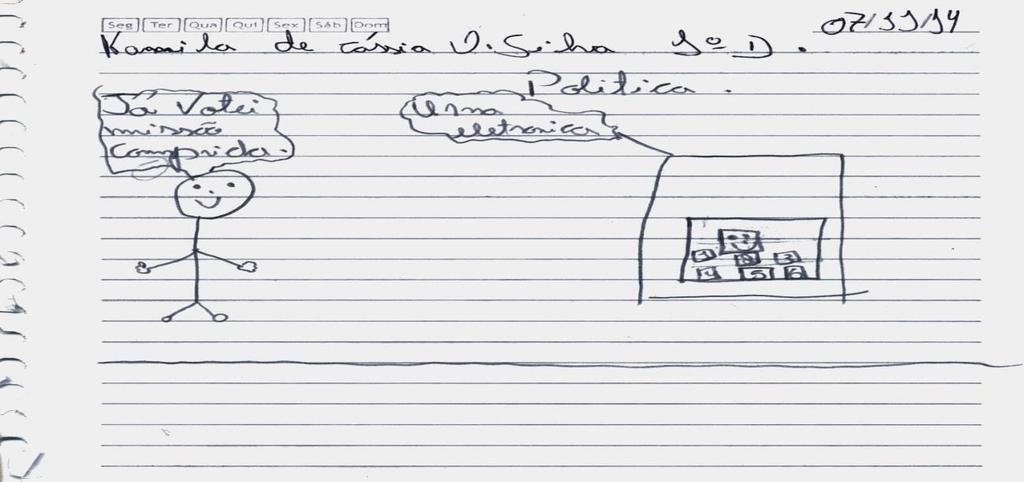 Seg Ter Qua Qui Sex Sáb Dom
07/11/14
Kamila de Cássia V. Silva 1º D.
Politica.
Já Votei
missão
Comprida.
Urna
eletronica
1 2 3
4 5 6